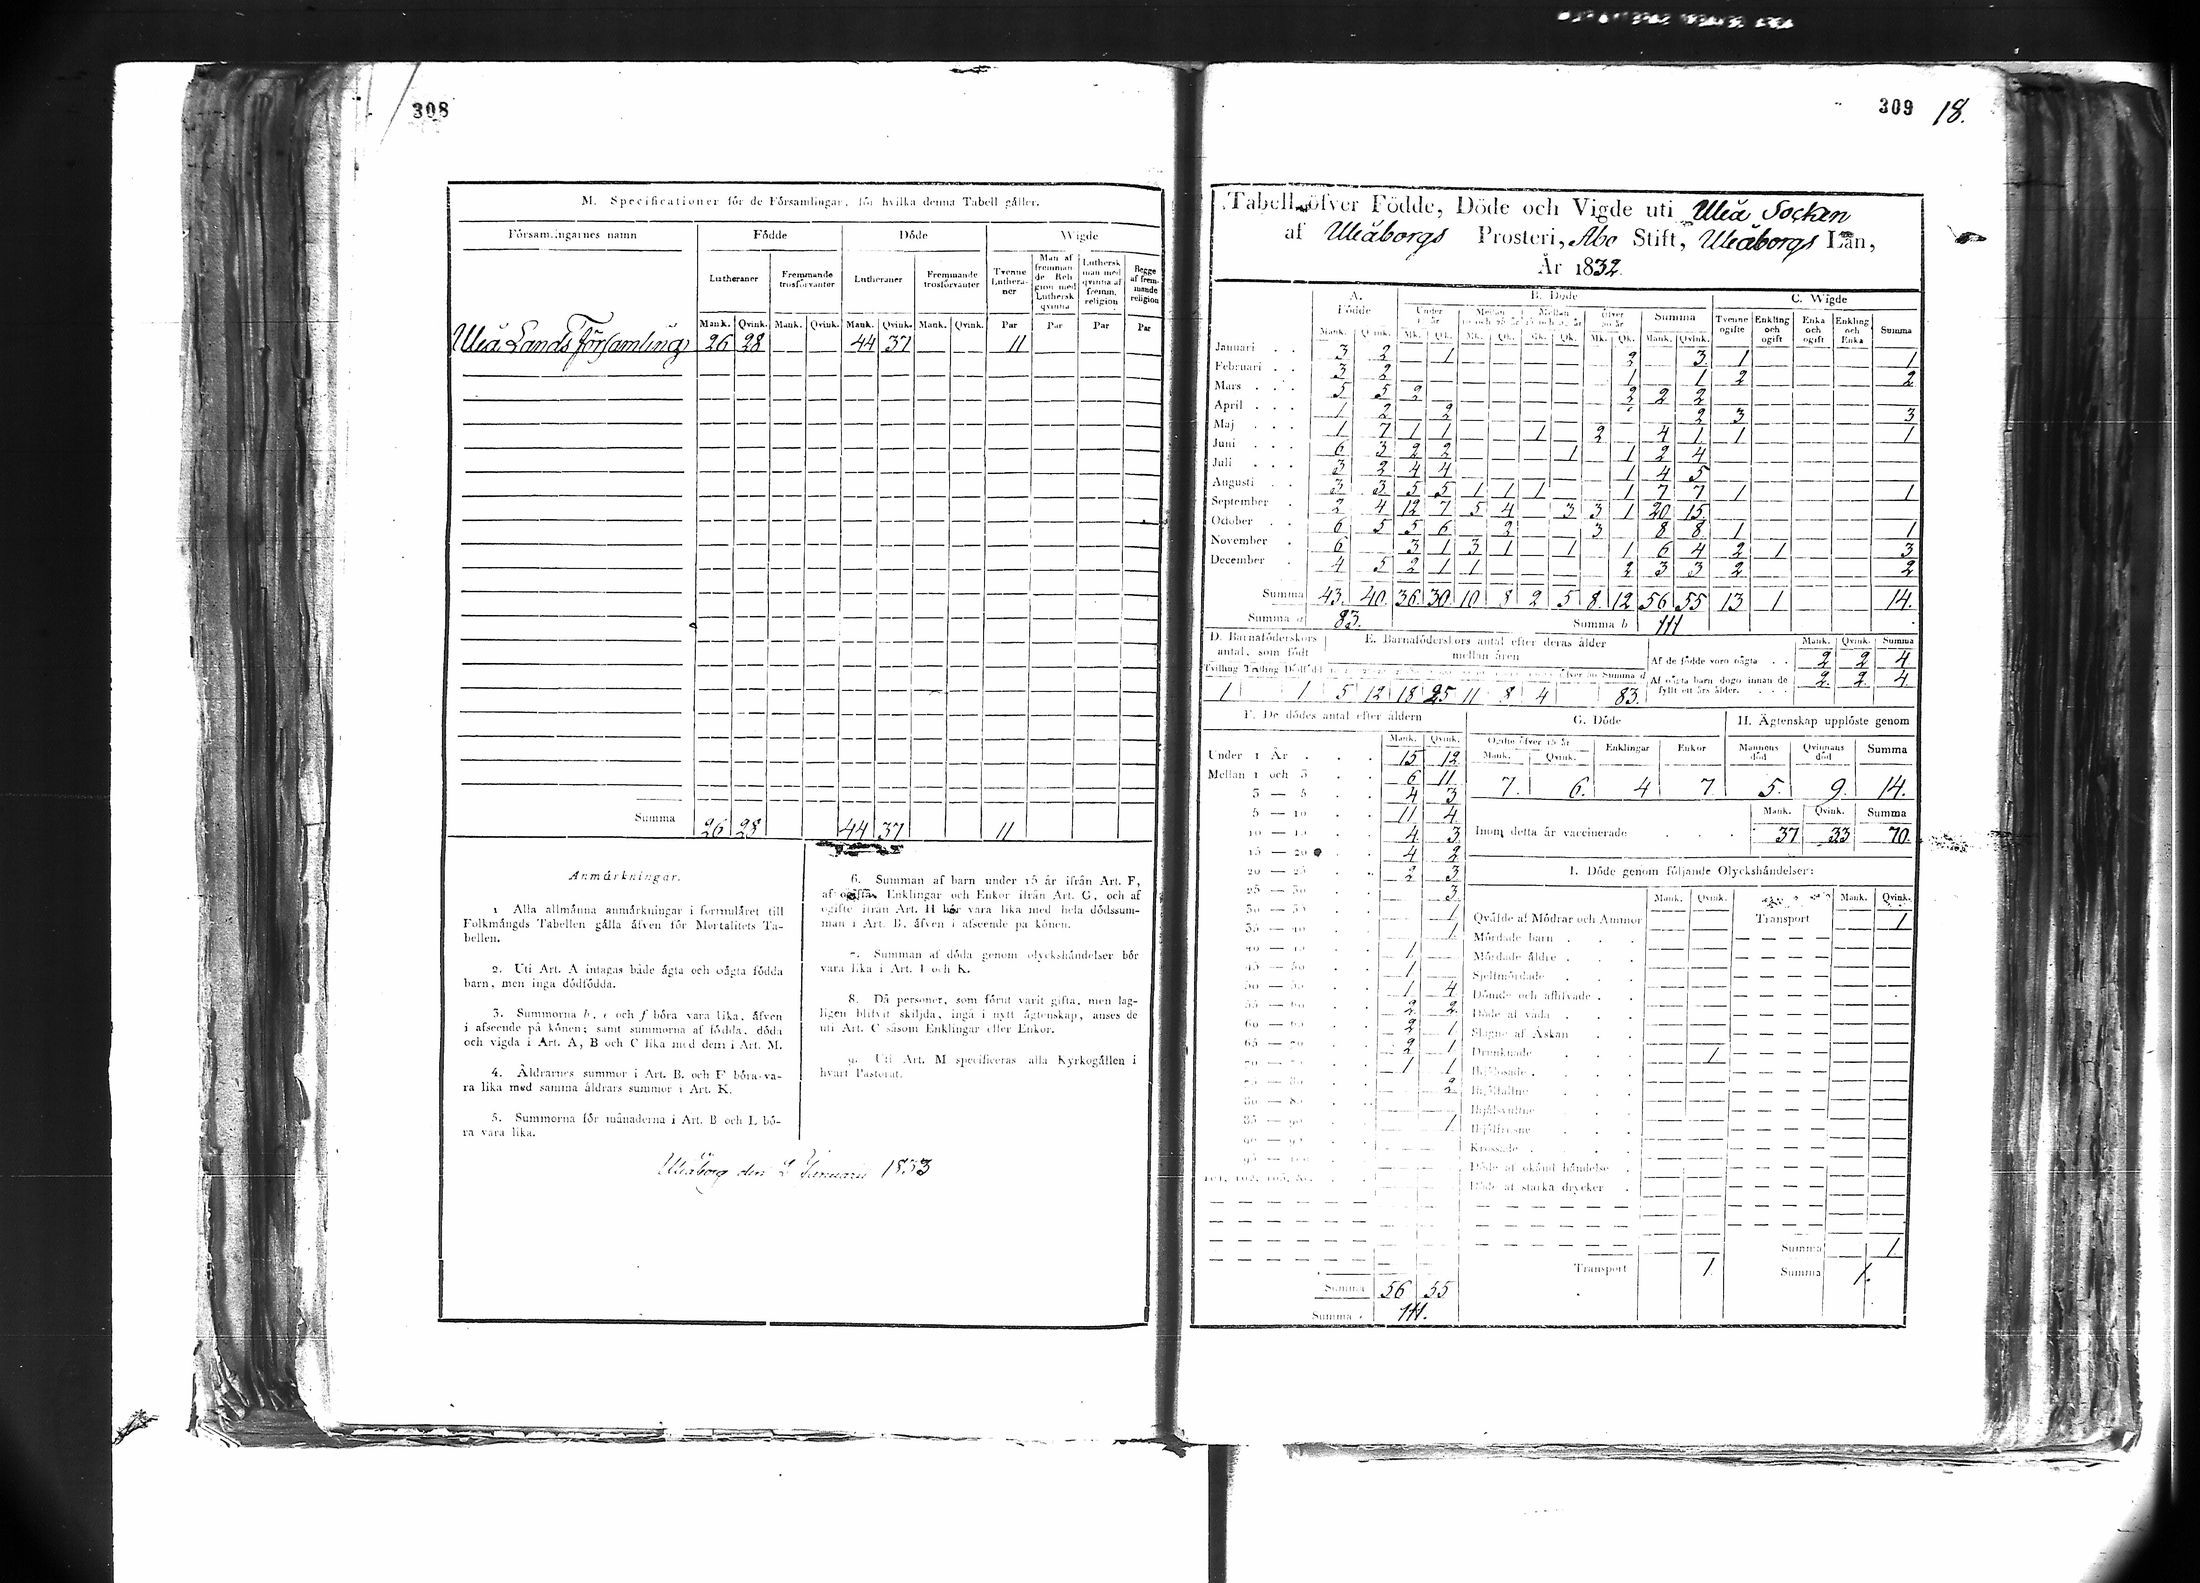 308
M. Specificationer för de Församlingar, för hvilka denna Tabell gäller.
Församlingarnes namn | Födde | Döde | Wigde
Lutheraner | Fremmande trosförvanter | Lutheraner | Fremmande trosförvanter | Tvenne Lutheraner | Man af fremmande Religion med Luthersk qvinna | Luthersk man med qvinna af fremm. religion | Begge af fremmande religion
Mank. | Qvink. | Mank. | Qvink. | Mank. | Qvink. | Mank. | Qvink. | Par | Par | Par | Par
Uleå Lands Församling | 26 | 28 | 44 | 37 | 11
Summa | 26 | 28 | 44 | 37 | 11
Anmärkningar.
1 Alla allmänna anmärkningar i formuläret till
Folkmängds Tabellen gälla äfven för Mortalitets Ta-
bellen.
2. Uti Art. A intagas både ägta och oägta födda
barn, men inga dödfödda.
3. Summorna b, e och f böra vara lika, äfven
i afseende på könen; samt summorna af födda, döda
och vigda i Art. A, B och C lika med dem i Art. M.
4. Åldrarnes summor i Art. B. och F böra va-
ra lika med samma åldrars summor i Art. K.
5. Summorna för månaderna i Art. B och L bö-
ra vara lika.
6. Summan af barn under 15 år ifrån Art. F,
af ogifta, Enklingar och Enkor ifrån Art. G, och af
ogifte ifrån Art. H bör vara lika med hela dödssum-
man i Art. B, äfven i afseende på könen.
7. Summan af döda genom olyckshändelser bör
vara lika i Art. I och K.
8. Då personer, som förut varit gifta, men lag-
ligen blifvit skiljda, ingå i nytt ägtenskap, anses de
uti Art. C såsom Enklingar eller Enkor.
9. Uti Art. M specificeras alla Kyrkogällen i
hvart Pastorat.
Uleåborg den 2 Januarii 1833
309 18.
Tabell öfver Födde, Döde och Vigde uti Uleå Socken
af Uleåborgs Prosteri, Åbo Stift, Uleåborgs Län,
År 1832.
A. Födde | B. Döde | C. Wigde
Summa | Tvenne ogifte | Enkling och ogift | Enka och ogift | Enkling och Enka | Summa
Januari | 3 | 2 | 1 | 2 | 3 | 1 | 1
Februari | 3 | 2 | 1 | 1 | 2 | 2
Mars | 5 | 5 | 2 | 2 | 2 | 2
April | 1 | 2 | 2 | 2 | 3 | 3
Maj | 1 | 7 | 1 | 1 | 1 | 2 | 4 | 1 | 1 | 1
Juni | 6 | 3 | 2 | 2 | 1 | 1 | 2 | 4
Juli | 3 | 2 | 4 | 4 | 1 | 4 | 5
Augusti | 3 | 3 | 5 | 5 | 1 | 1 | 1 | 1 | 7 | 7 | 1 | 1
September | 2 | 4 | 12 | 7 | 5 | 4 | 3 | 3 | 1 | 20 | 15
October | 6 | 5 | 5 | 6 | 2 | 3 | 8 | 8 | 1 | 1
November | 6 | 3 | 1 | 3 | 1 | 1 | 1 | 6 | 4 | 2 | 1 | 3
December | 4 | 5 | 2 | 1 | 1 | 2 | 3 | 3 | 2 | 2
Summa | 43. | 40. | 36 | 30 | 10 | 8 | 2 | 5 | 8 | 12 | 56 | 55 | 13 | 1 | 14.
Summa a | 83. | Summa b | 111
D. Barnaföderskors antal, som födt | E. Barnaföderskors antal efter deras ålder mellan åren
1 | 1 | 5 | 12 | 18 | 25 | 11 | 8 | 4 | 83.
Mank. | Qvink. | Summa
Af de födde voro oägta | 2 | 2 | 4
Af oägta barn dogo innan de fyllt ett års ålder. | 2. | 2. | 4.
F. De dödes antal efter åldern
Mank. | Qvink.
Under 1 År | 15 | 12
Mellan 1 och 3 | 6 | 11
3 — 5 | 4 | 3
5 — 10 | 11 | 4
10 — 15 | 4 | 3
15 — 20 | 4 | 2
20 — 25 | 2 | 3
25 — 30 | 3
30 — 35 | 1
35 — 40 | 1
40 — 45 | 1
45 — 50 | 1
50 — 55 | 1 | 4
55 — 60 | 2 | 2
60 — 65 | 2 | 1
65 — 70 | 2 | 1
70 — 75 | 1 | 1
75 — 80 | 2
80 — 85
85 — 90 | 1
90 — 95
95 — 100
Summa | 56 | 55
Summa | 111.
G. Döde
Ogifte öfver 15 år | Enklingar | Enkor
Mank. | Qvink.
7. | 6. | 4 | 7
H. Ägtenskap upplöste genom
Mannens död | Qvinnans död | Summa
5. | 9. | 14.
Mank. | Qvink. | Summa
Inom detta år vaccinerade | 37 | 33 | 70.
I. Döde genom följande Olyckshändelser:
Mank. | Qvink. | Mank. | Qvink.
Qväfde af Mödrar och Ammor | Transport | 1
Mördade barn
Mördade äldre
Sjelfmördade
Dömde och aflifvade
Döde af våda
Slagne af Åskan
Drunknade | 1
Ihjälfrusne
Krossade
Döde af okänd händelse
Döde af starka drycker
Summa | 1.
Transport | 1. | Summa | 1.